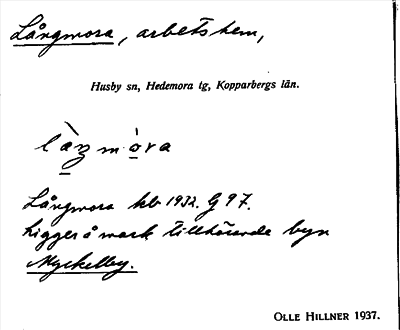 Långmora, arbetshem,
Husby sn, Hedemora tg, Kopparbergs län.
làŋmòra
Långmora kb 1932. G 97.
Ligger å mark tillhörande byn
Myckelby.
OLLE HILLNER 1937.